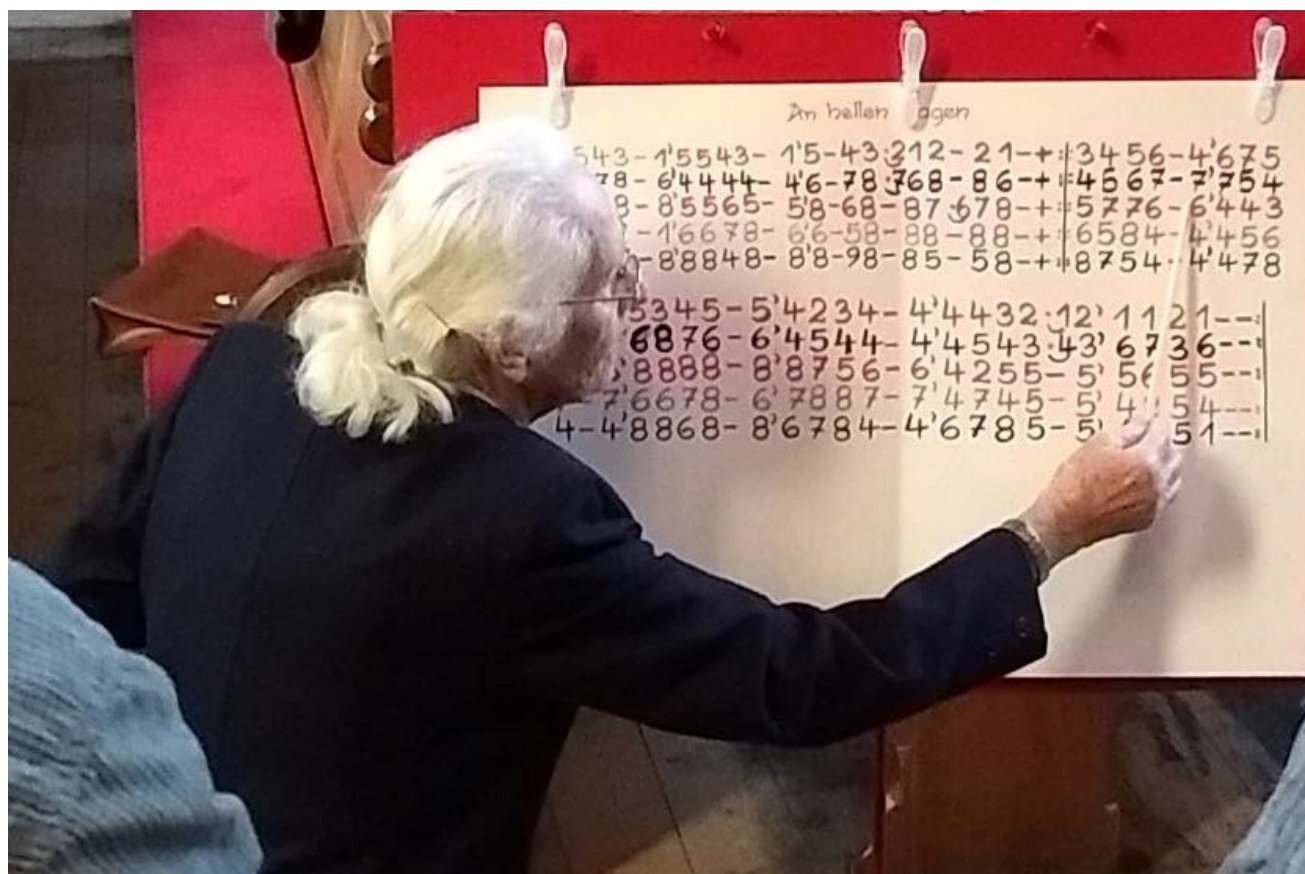 An hellen agen
543-1'5543- 1'5-43·212- 21-+:‖3456-4'675
78-6'4444- 4'6-78·768-86-+:‖4567-7'754
8-8'5565- 5'8-68-87·678-+:‖5776-6'443
-1'6678- 6'6-58-88-88-+:‖6584-4'456
-8'8848- 8'8-98-85-58-+:‖8754-4'478
5345-5'4234-4'4432·12' 1121--:|
6876-6'4544-4'4543·43' 6736--:|
'8888-8'8756-6'4255-5' 5655--:|
-7'6678-6'7887-7'4745-5' 4 54--:|
4-4'8868-8'6784-4'6785-5' 51--:|